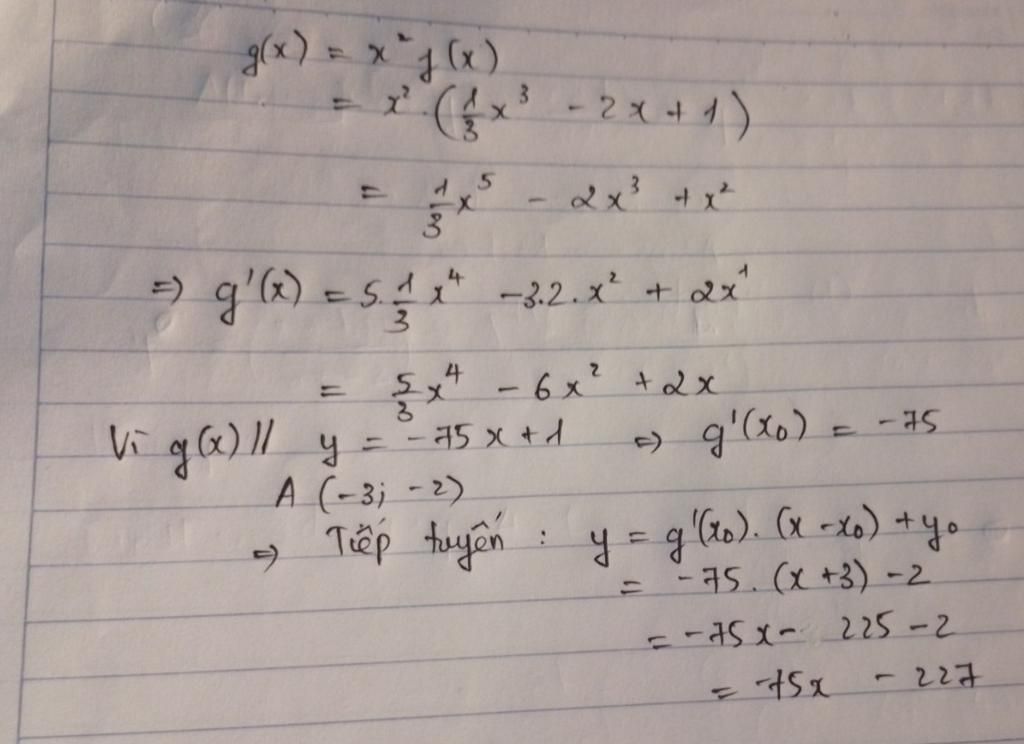 g(x) = x² f(x)
= x². (1/3 x³ - 2x + 1)
= 1/3 x⁵ - 2x³ + x²
=> g'(x) = 5. 1/3 x⁴ - 3.2. x² + 2x¹
= 5/3 x⁴ - 6x² + 2x
Vì g(x) // y = -75x + 1 => g'(x₀) = -75
A (-3; -2)
=> Tiếp tuyến : y = g'(x₀). (x - x₀) + y₀
= -75. (x + 3) - 2
= -75x - 225 - 2
= -75x - 227